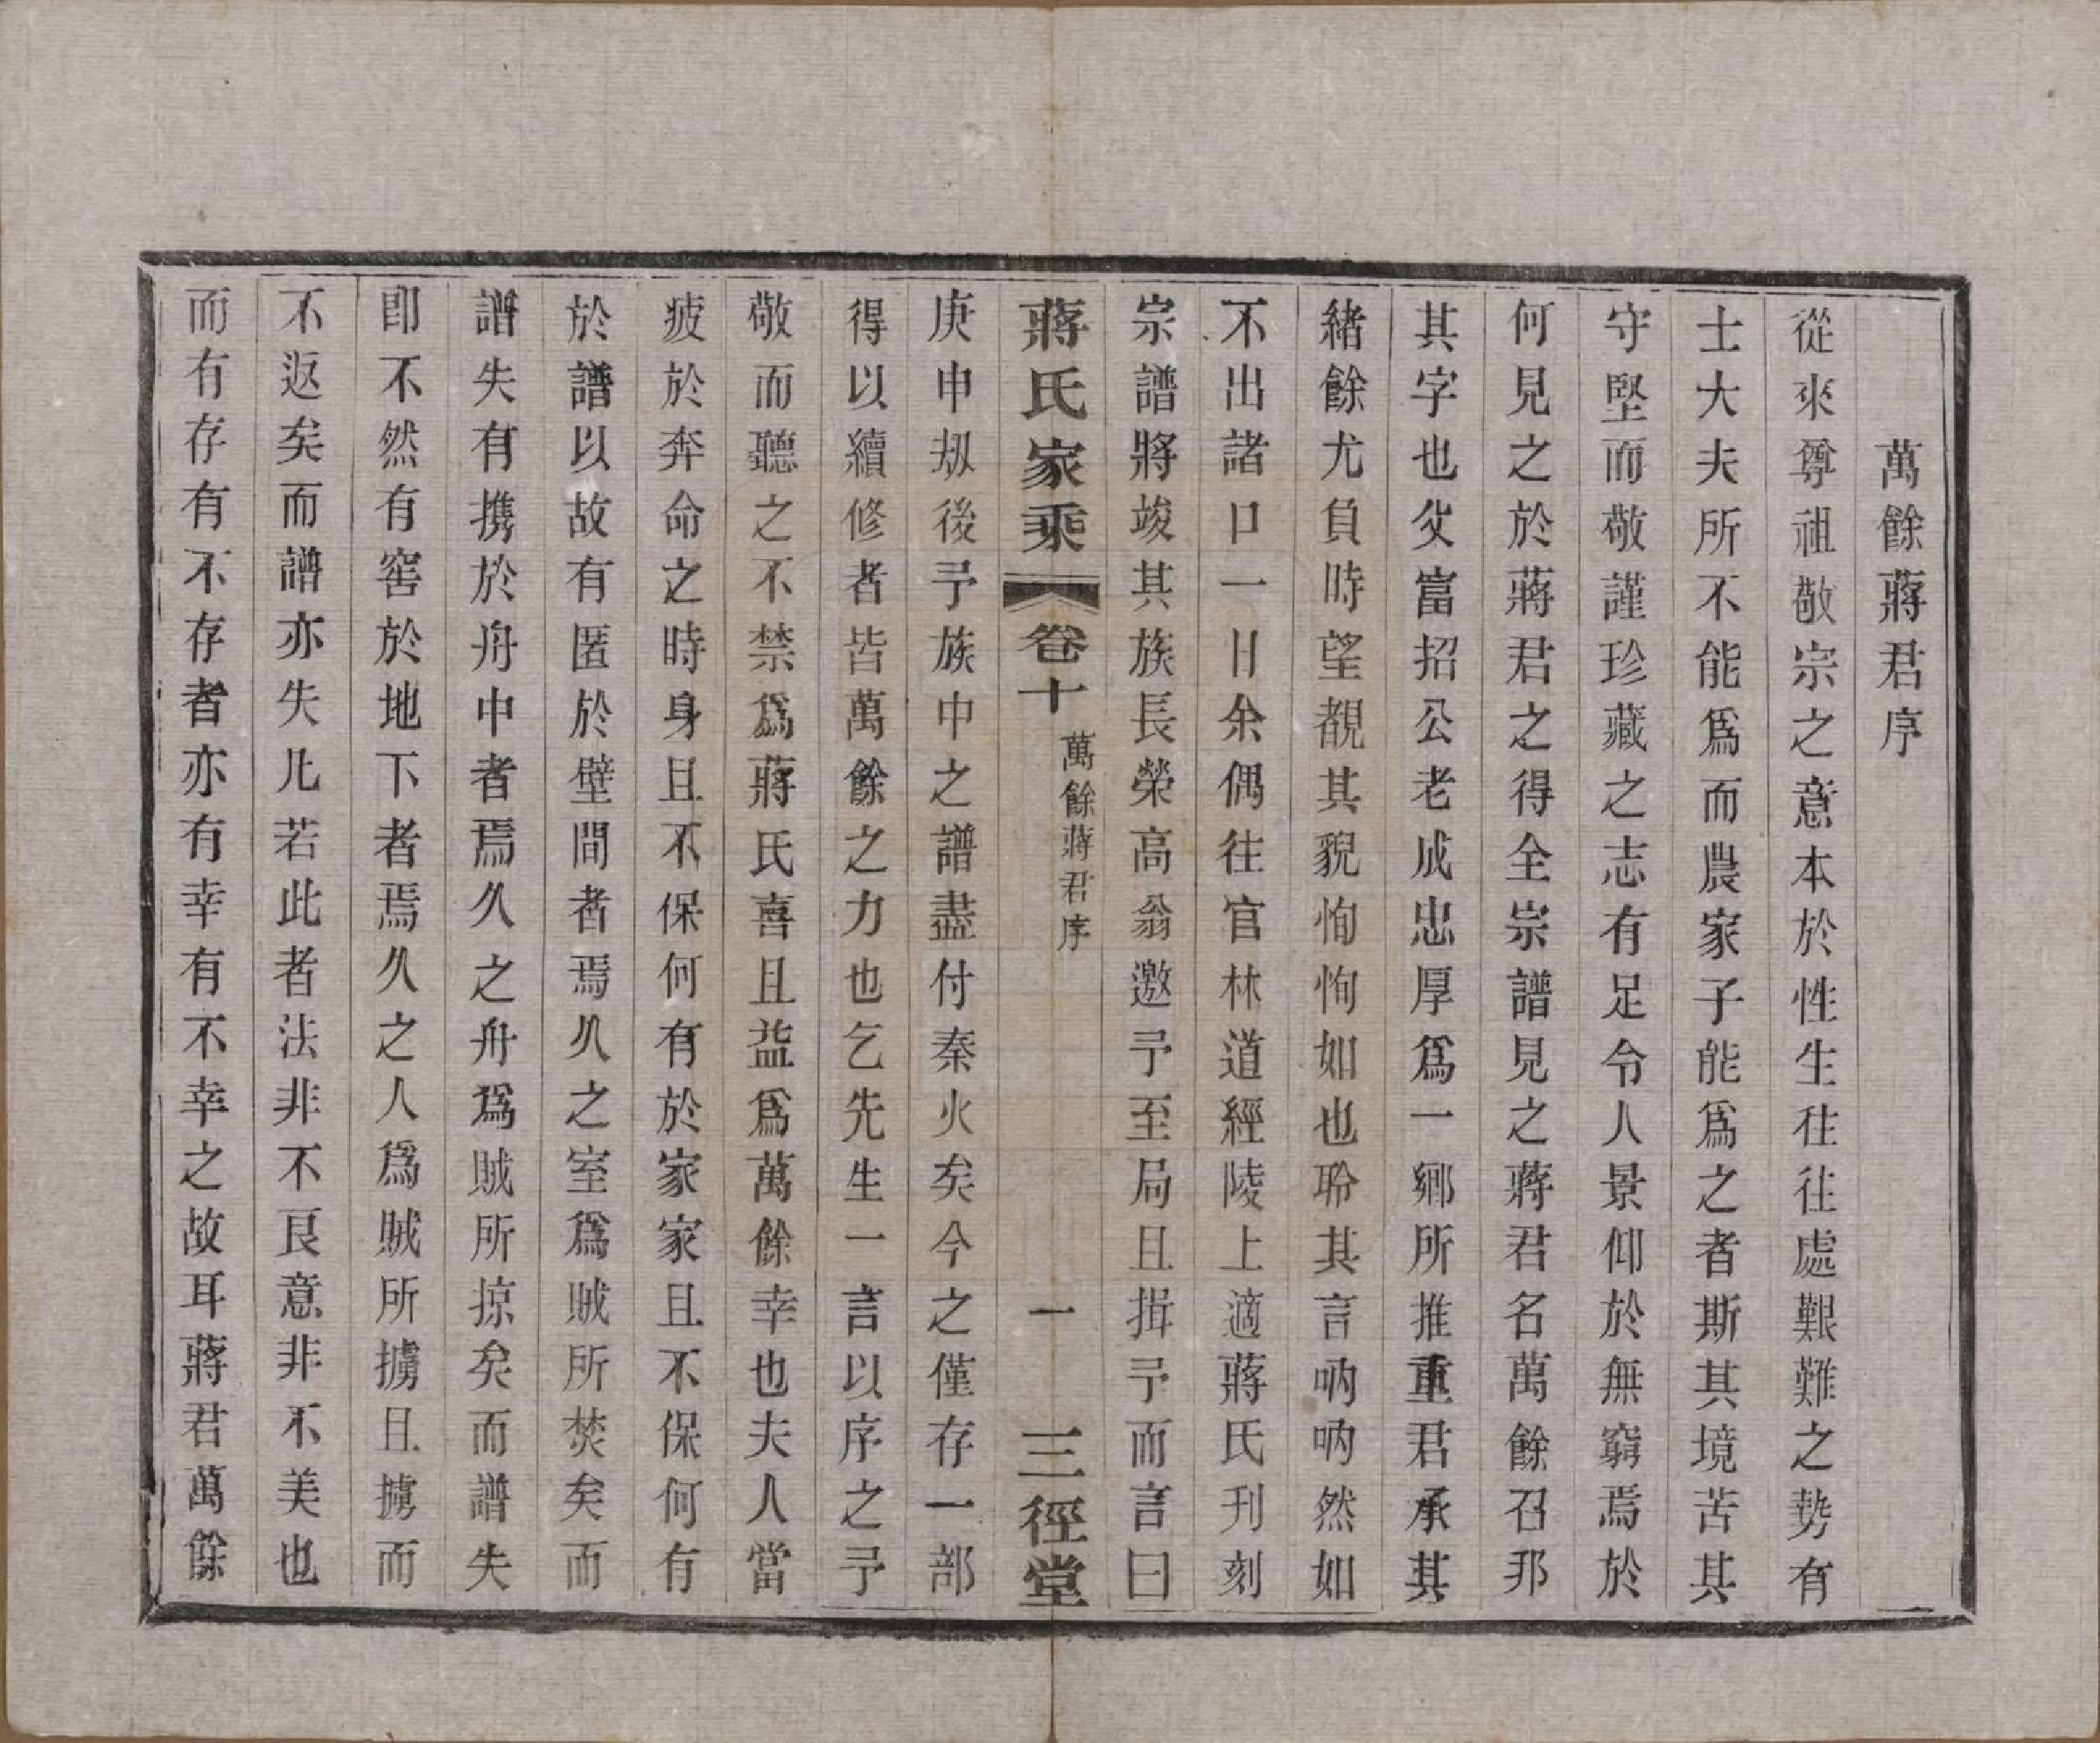 萬餘蔣君序
從來尊祖敬宗之意本於性生往往處艱難之勢有
士大夫所不能爲而農家子能爲之者斯其境苦其
守堅而敬謹珍藏之志有足令人景仰於無窮焉於
何見之於蔣君之得全宗譜見之蔣君名萬餘召邦
其字也父富招公老成忠厚爲一鄉所推重君承其
緒餘尤負時望覩其貌恂恂如也聆其言吶吶然如
不出諸口一日余偶往官林道經陵上適蔣氏刊刻
宗譜將竣其族長榮高翁邀予至局且揖予而言曰
蔣氏家乘 卷十 萬餘蔣君序 一 三徑堂
庚申刼後予族中之譜盡付秦火矣今之僅存一部
得以續修者皆萬餘之力也乞先生一言以序之予
敬而聽之不禁爲蔣氏喜且益爲萬餘幸也夫人當
疲於奔命之時身且不保何有於家家且不保何有
於譜以故有匿於壁間者焉久之室爲賊所焚矣而
譜失有携於舟中者焉久之舟爲賊所掠矣而譜失
卽不然有窖於地下者焉久之人爲賊所擄且擄而
不返矣而譜亦失凡若此者法非不良意非不美也
而有存有不存者亦有幸有不幸之故耳蔣君萬餘